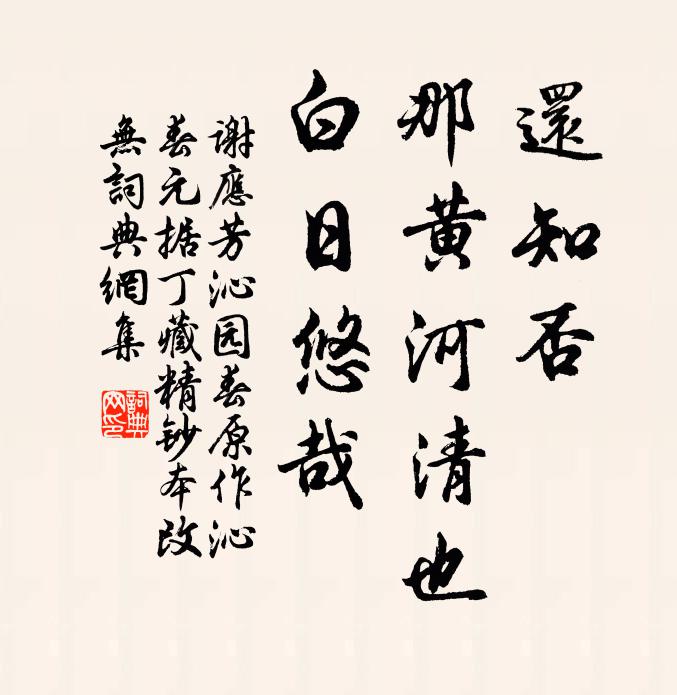 還知否
那黄河清也
白日悠哉
谢應芳沁园春原作沁
春元据丁藏精鈔本改
無詞典網集
詞典網印